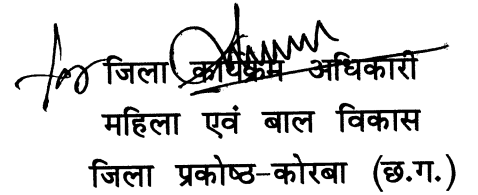 for जिला कार्यक्रम अधिकारी
महिला एवं बाल विकास
जिला प्रकोष्ठ-कोरबा (छ.ग.)